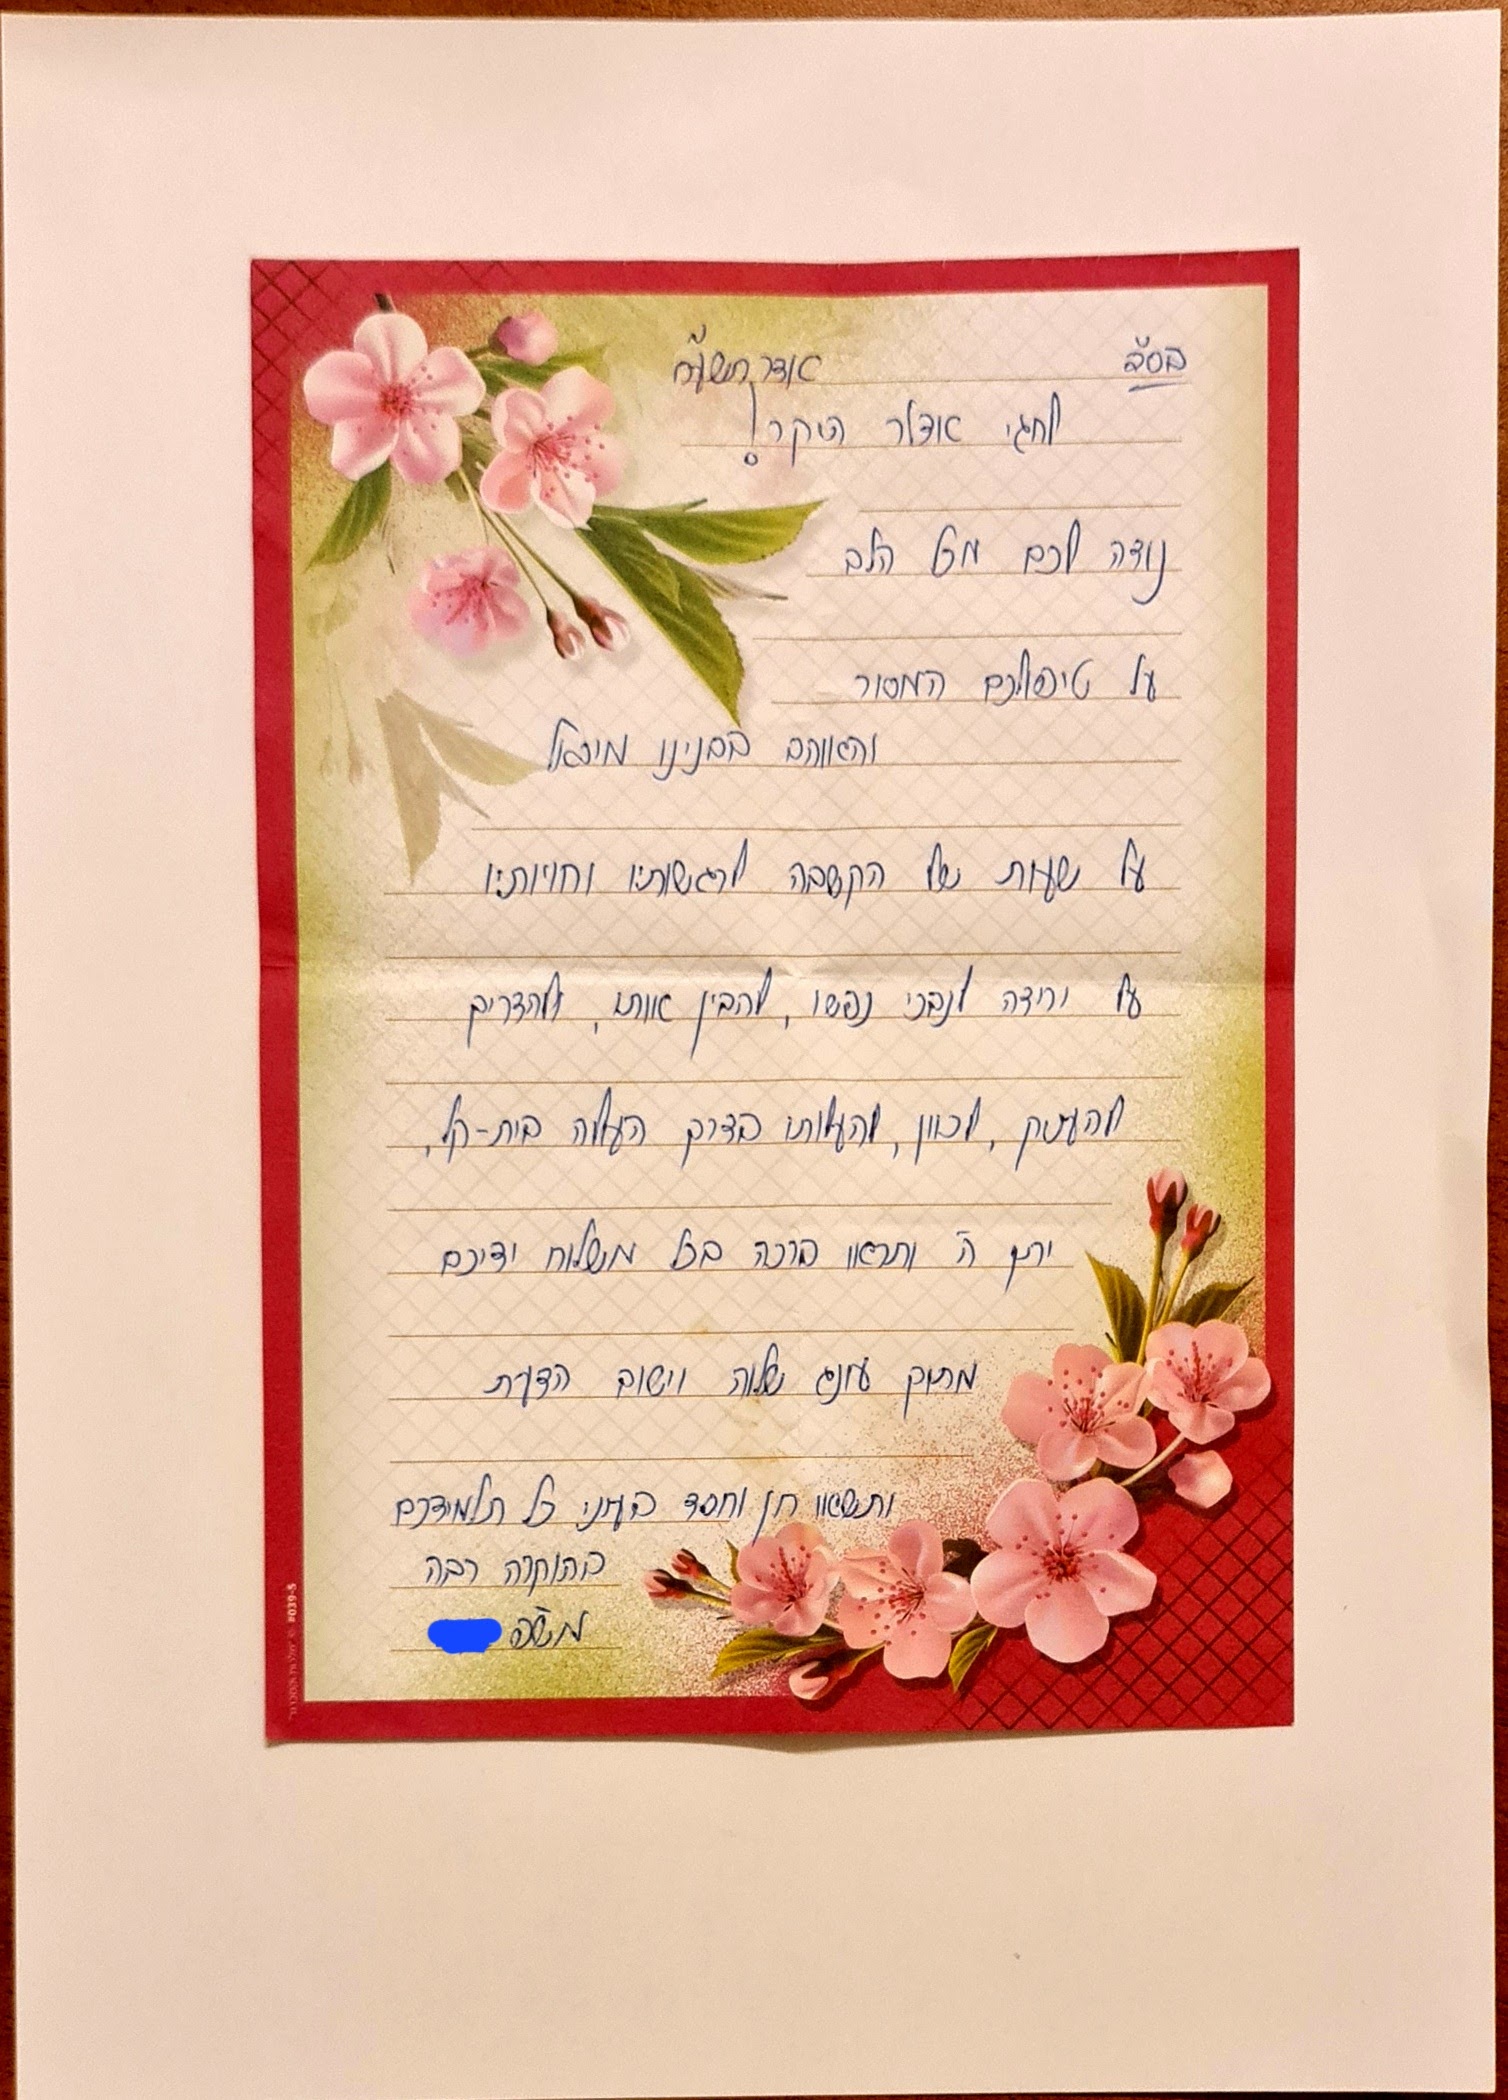 בס"ד אדר תשע"ח
לחגי אדלר היקר!
נודה לכם מכל הלב
על טיפולכם המסור
והאוהב בבנינו מיכאל
על שעות של הקשבה לרגשותיו וחויותיו
על ירידה לנבכי נפשו, להבין אותו, ולהדריך
להעניק, לכוון, להעלותו בדרך העולה בית-קל,
יתן ה' ותראו ברכה בכל משלוח ידיכם
מתוך עונג שלוה וישוב הדעת
ותשאו חן וחסד בעיני כל תלמידכם
בהוקרה רבה
משפ'
#039-S